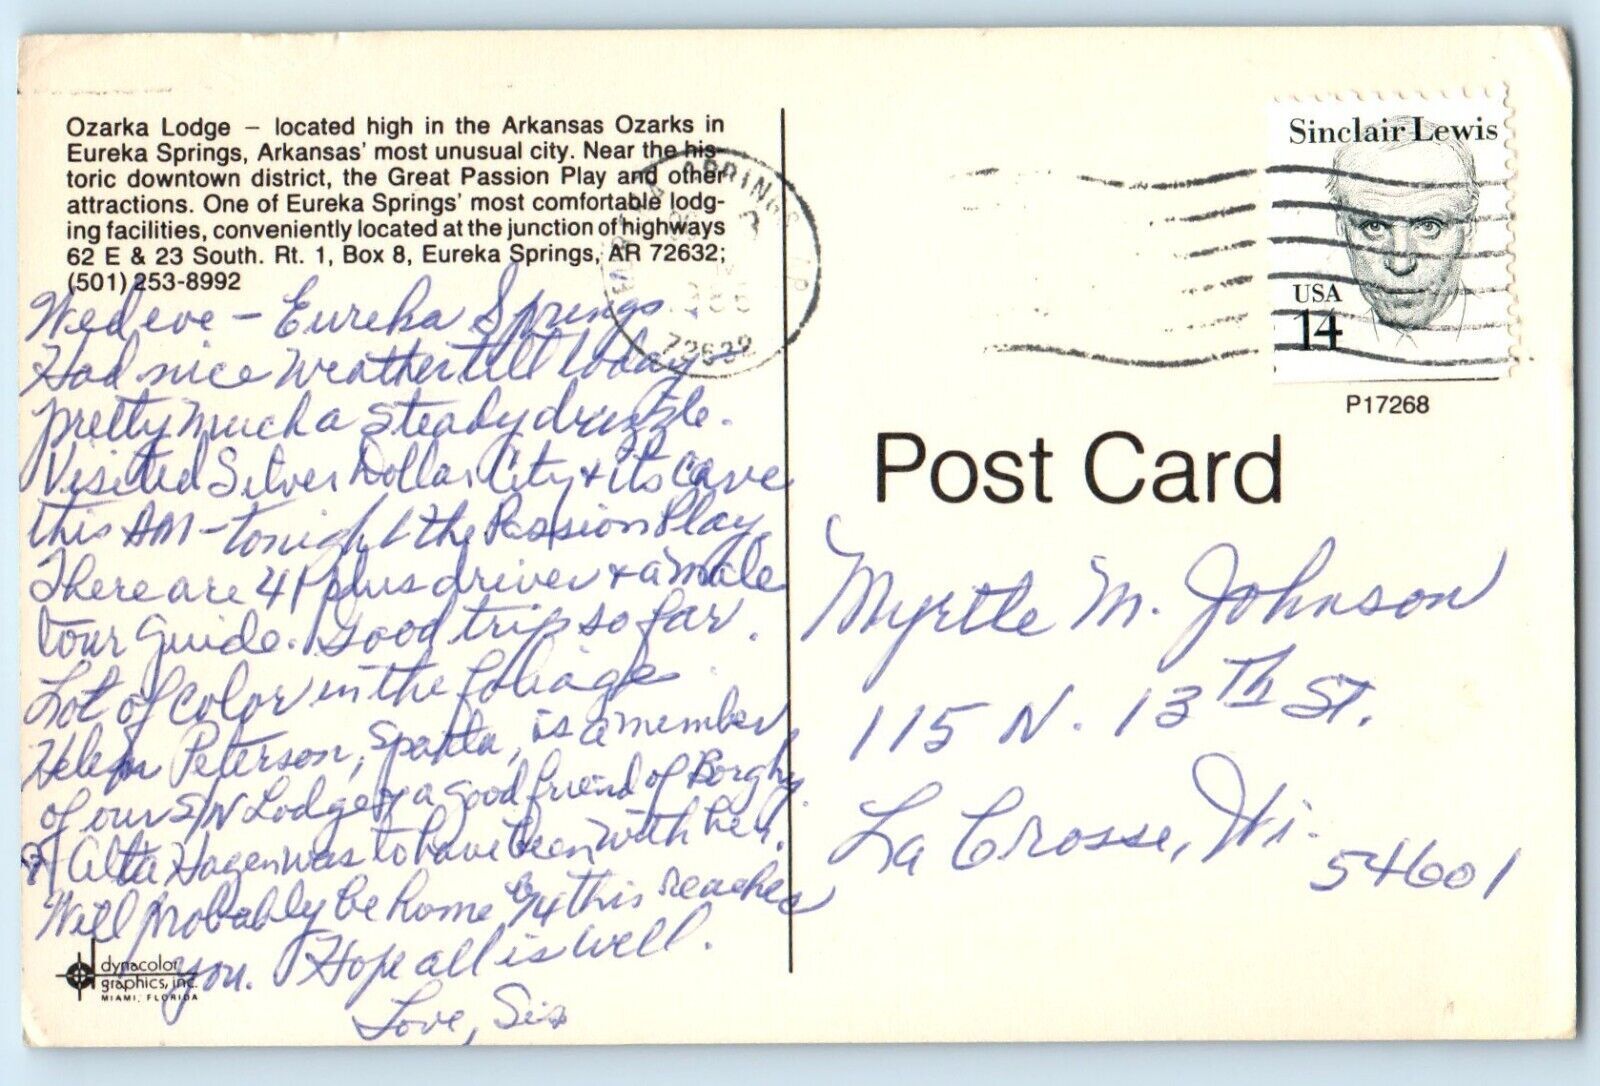 Ozarka Lodge – located high in the Arkansas Ozarks in
Eureka Springs, Arkansas' most unusual city. Near the his-
toric downtown district, the Great Passion Play and other
attractions. One of Eureka Springs' most comfortable lodg-
ing facilities, conveniently located at the junction of highways
62 E & 23 South. Rt. 1, Box 8, Eureka Springs, AR 72632;
(501) 253-8992
Wed eve – Eureka Springs
Had nice weather till today –
pretty much a steady drizzle.
Visited Silver Dollar City & its cave
this AM – tonight the Passion Play.
There are 41 plus driver & a male
tour guide. Good trip so far.
Lot of color in the foliage.
Helen Peterson, Sparta, is a member
of our S/N Lodge & a good friend of Borghy.
Alta Hagen was to have been with her.
Will probably be home by this reaches
you. Hope all is well.
Love, Sis
dynacolor
graphics, inc.
MIAMI, FLORIDA
SPRINGS
72632
Sinclair Lewis
USA
14
P17268
Post Card
Myrtle M. Johnson
115 N. 13th St.
La Crosse, Wi.
54601